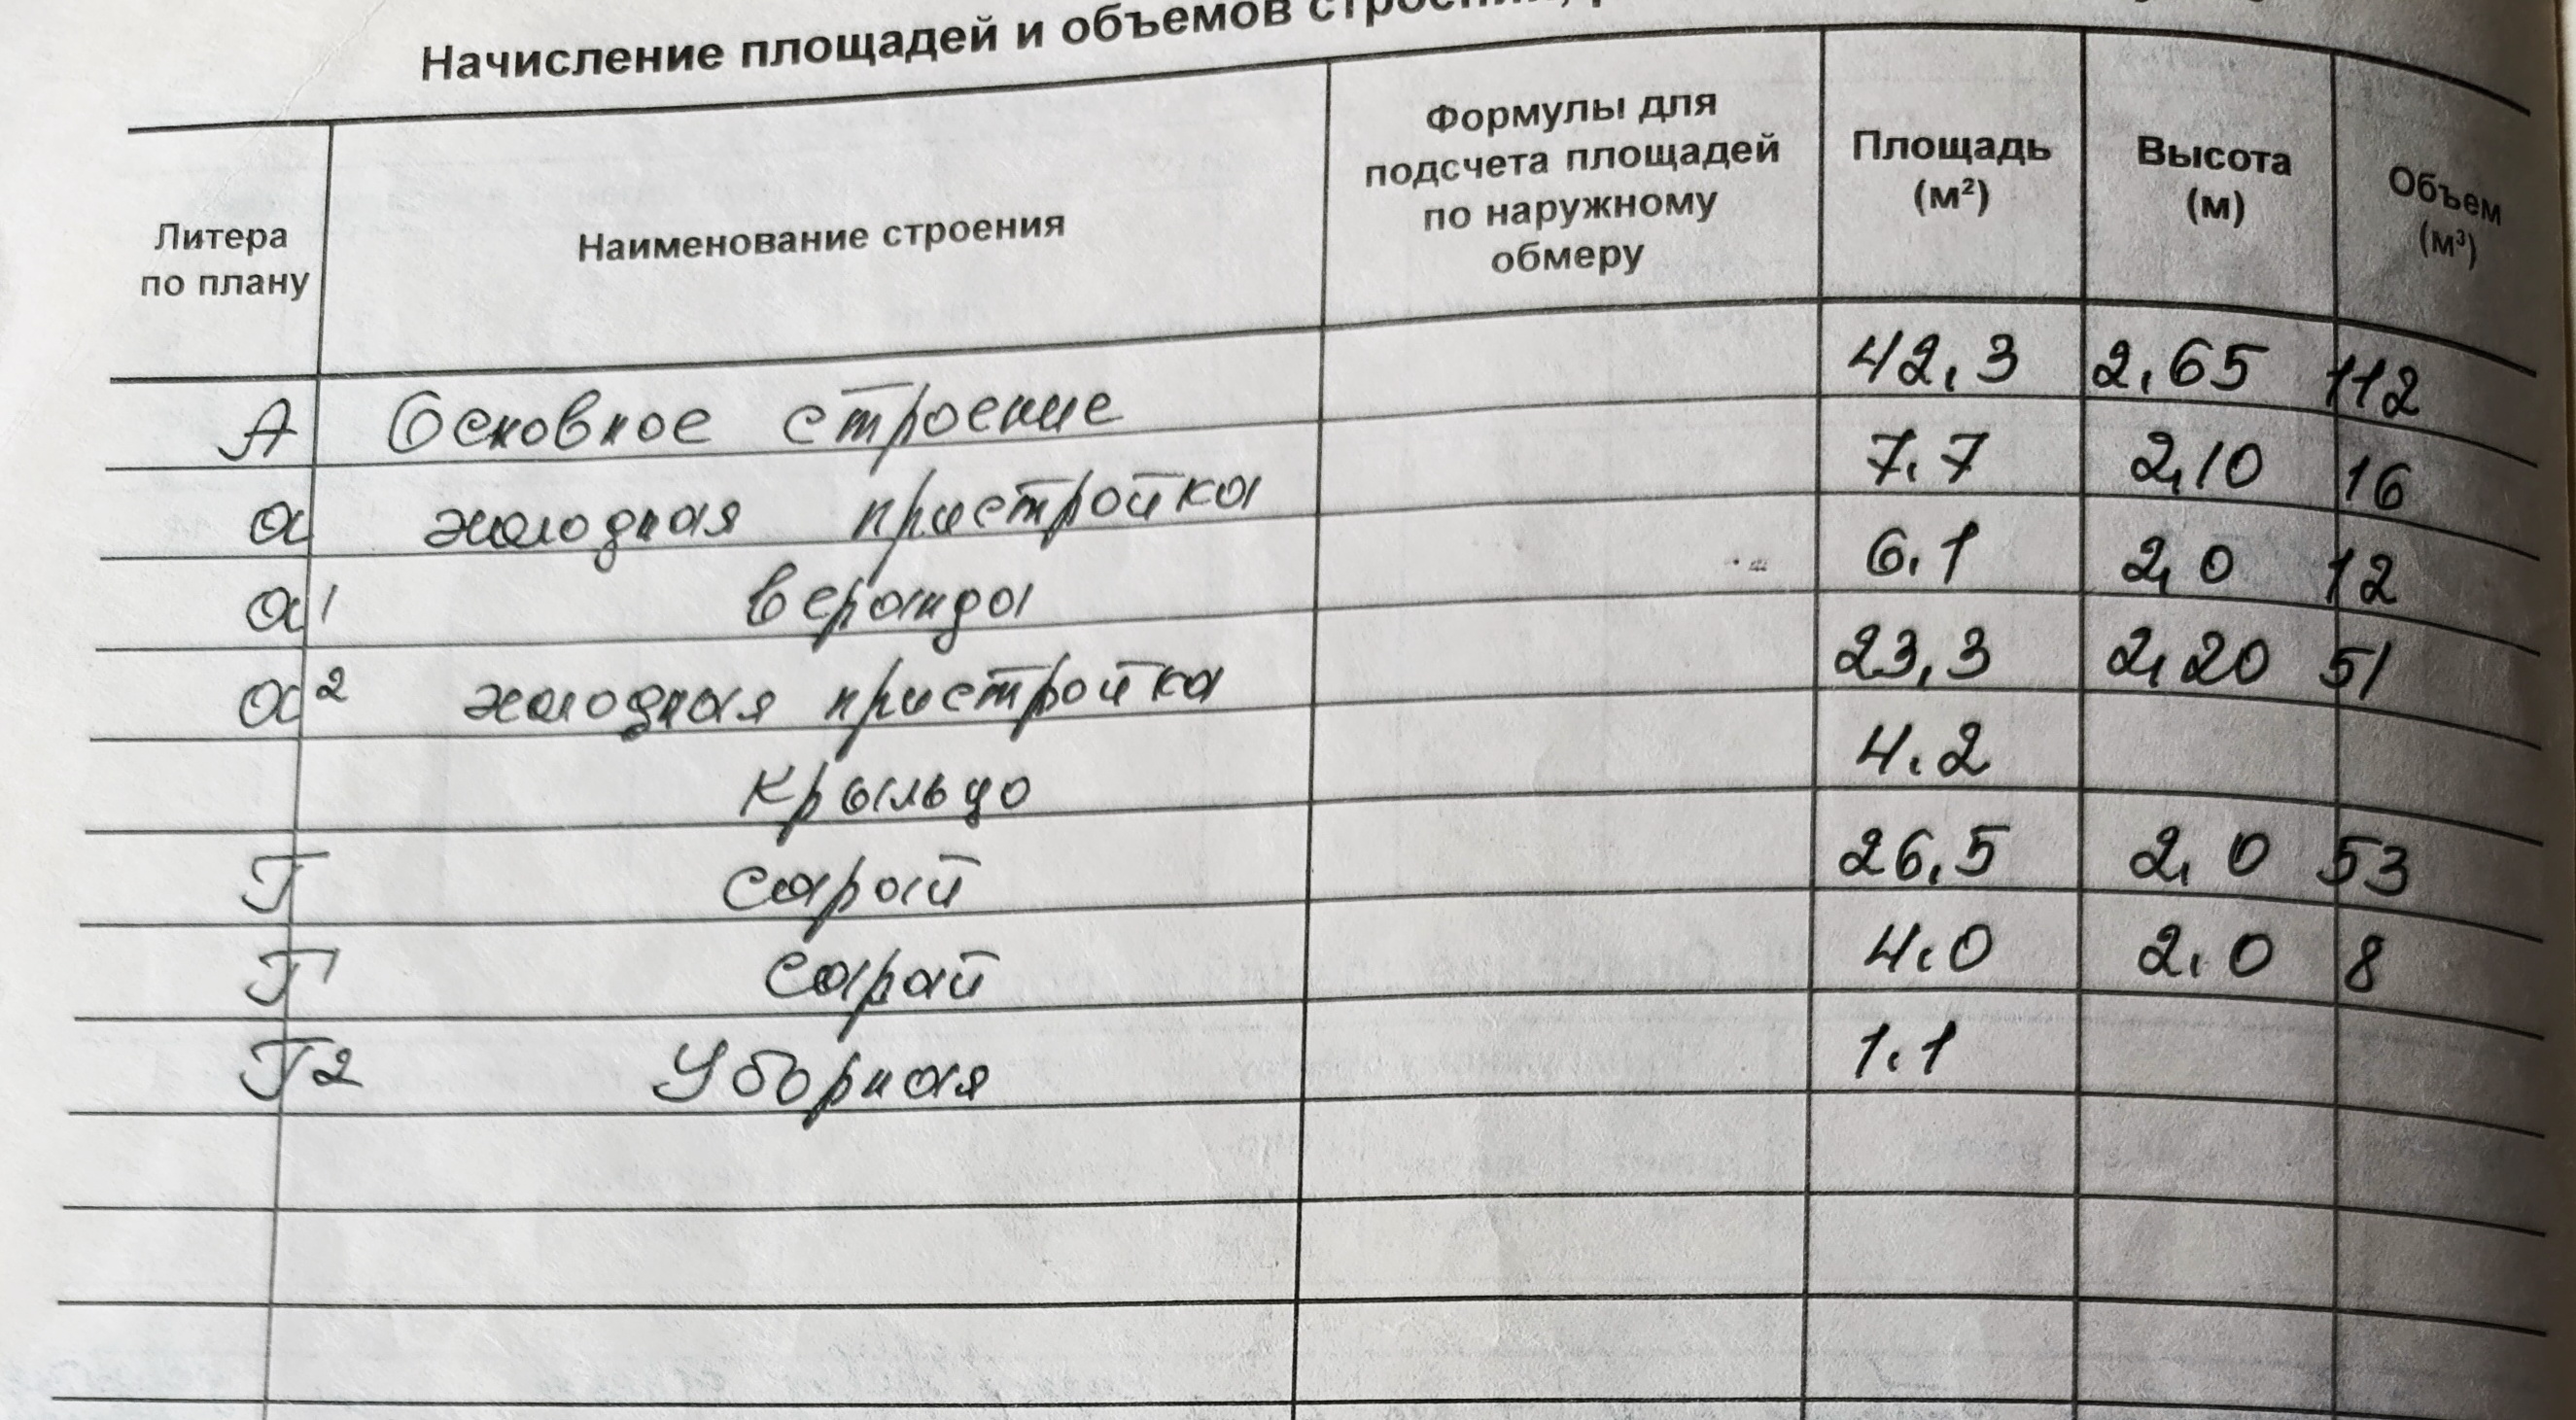 Начисление площадей и объемов
Литера по плану | Наименование строения | Формулы для подсчета площадей по наружному обмеру | Площадь (м²) | Высота (м) | Объем (м³)
А Основное строение 42,3 2,65 112
а холодная пристройка 7,7 2,10 16
а1 веранда 6,1 2,0 12
а2 холодная пристройка 23,3 2,20 51
крыльцо 4.2
Г сарай 26,5 2,0 53
Г1 сарай 4,0 2,0 8
Г2 Уборная 1.1